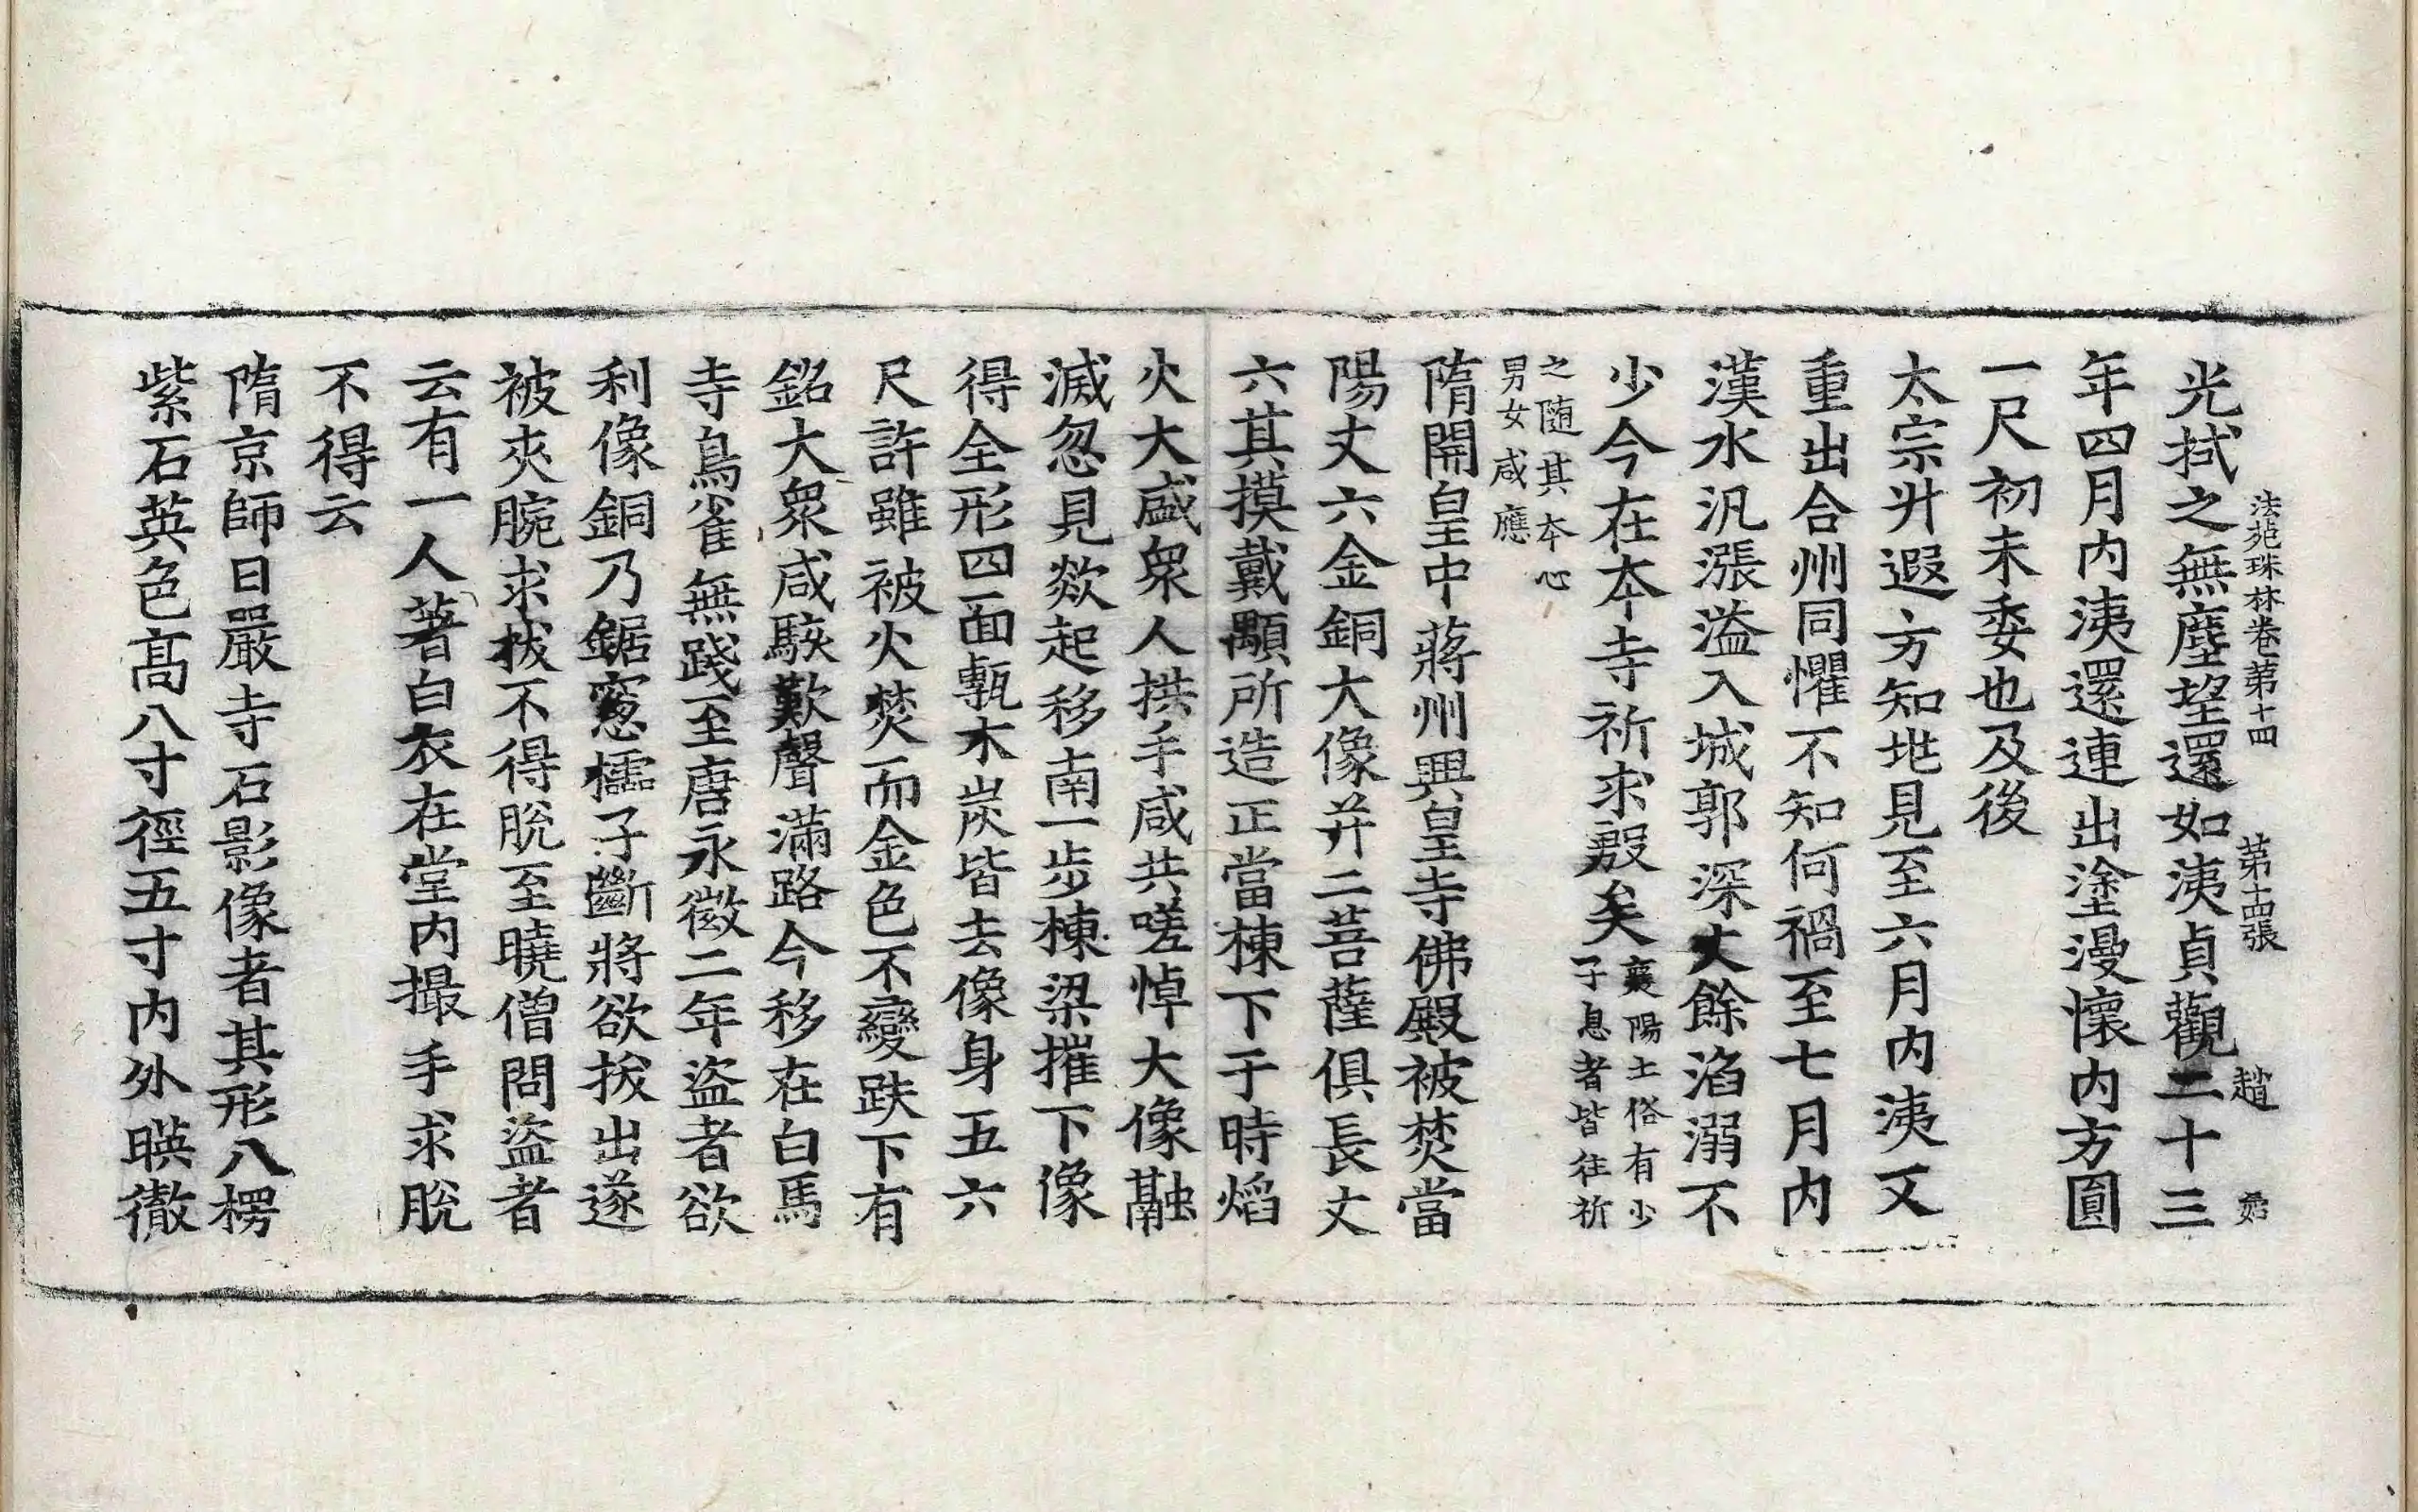 法苑珠林卷第十四 第十四張 趙
光拭之無塵望還如洟貞觀二十三
年四月內洟還連出塗漫懷內方圓
一尺初未委也及後
太宗升遐方知地見至六月內洟又
重出合州同懼不知何禍至七月內
漢水汎漲溢入城郭深丈餘淊溺不
少今在本寺祈求殷矣襄陽土俗有少
子息者皆往祈
之隨其本心
男女咸應
隋開皇中蔣州興皇寺佛殿被焚當
陽丈六金銅大像并二菩薩俱長丈
六其摸戴顒所造正當棟下于時焰
火大盛衆人拱手咸共嗟悼大像融
滅忽見欻起移南一步棟梁摧下像
得全形四面甎木炭皆去像身五六
尺許雖被火焚而金色不變趺下有
銘大衆咸駭歎聲滿路今移在白馬
寺鳥雀無踐至唐永徽二年盜者欲
利像銅乃鋸窻櫺子斷將欲拔出遂
被夾腕求拔不得脫至曉僧問盜者
云有一人著白衣在堂內撮手求脫
不得云
隋京師日嚴寺石影像者其形八楞
紫石英色高八寸徑五寸內外暎徹